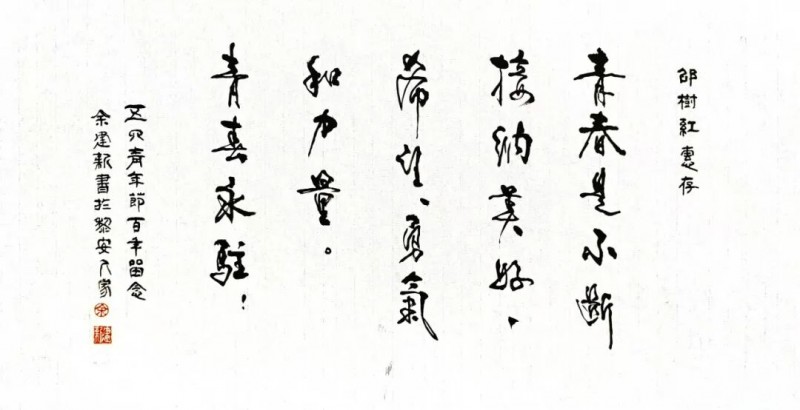 邵樹紅惠存
青春是不斷
接納美好、
希望、勇氣
和力量。
青春永駐！
五四青年節百年留念
余建新書於黎安人家
余